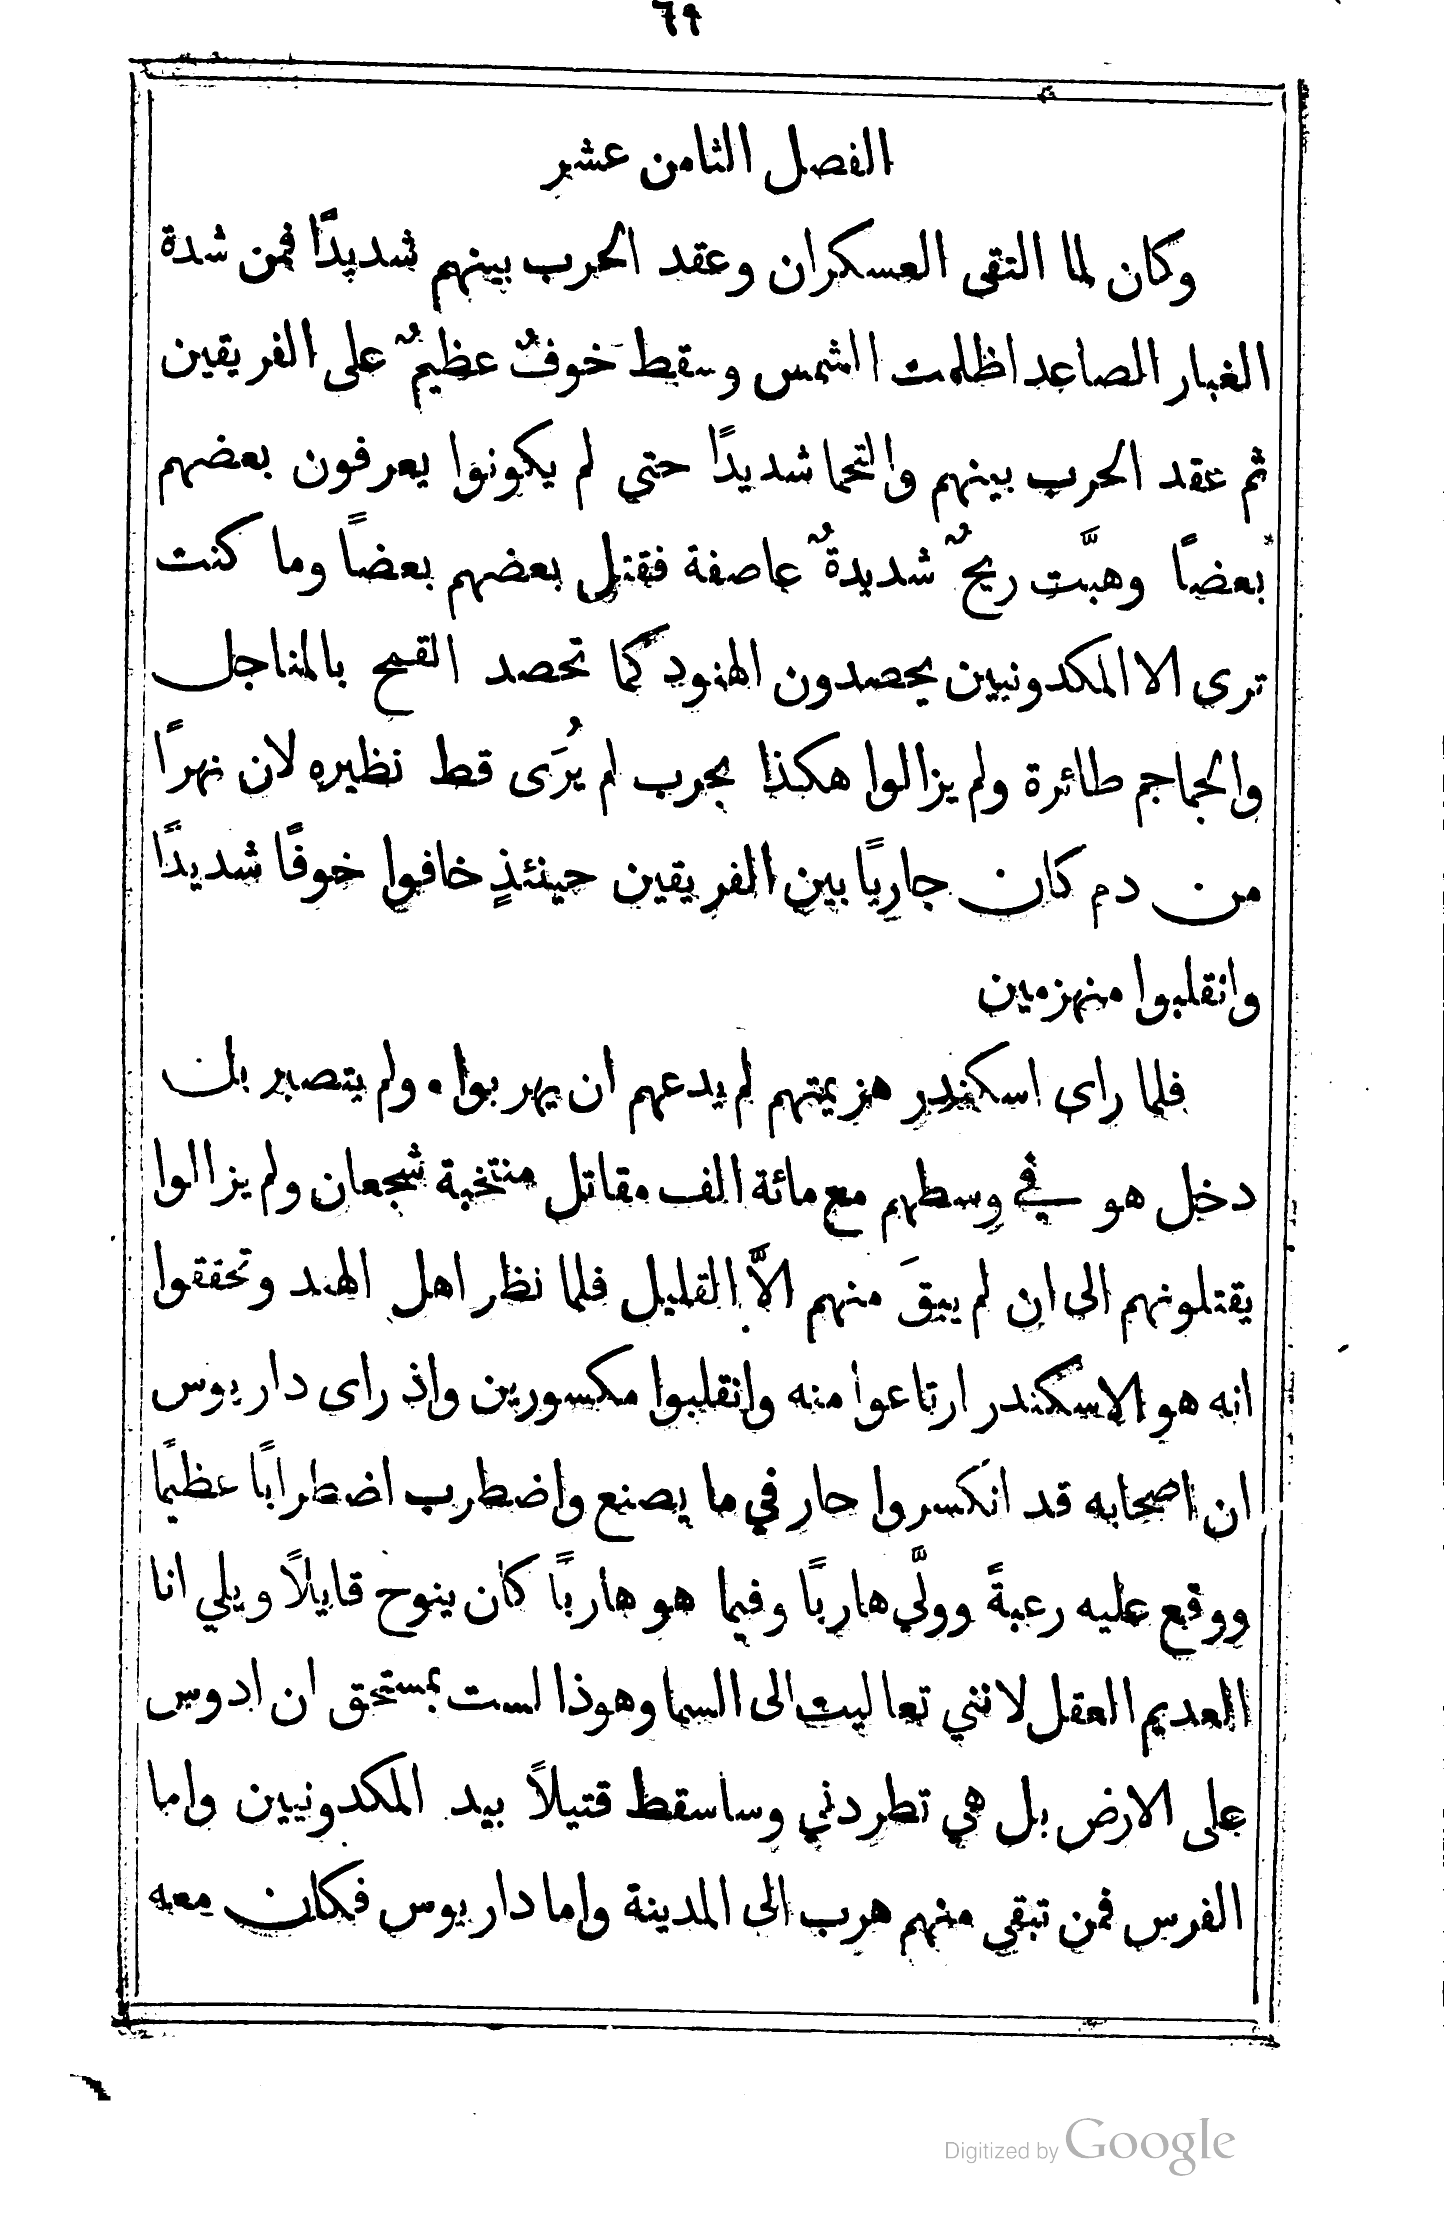 ٦٩
الفصل الثامن عشر
وكان لما التقى العسكران وعقد الحرب بينهم شديدًا فمن شدة
الغبار الصاعد اظلمت الشمس وسقط خوفٌ عظيمٌ على الفريقين
ثم عقد الحرب بينهم والتحما شديدًا حتي لم يكونوا يعرفون بعضهم
بعضًا وهبَّت ريحٌ شديدةٌ عاصفة فقتل بعضهم بعضًا وما كنت
ترى الا المكدونيين يحصدون الهنود كما تحصد القمح بالمناجل
والجماجم طائرة ولم يزالوا هكذا بحرب لم يُرَى قط نظيره لان نهرًا
من دم كان جاريًا بين الفريقين حينئذٍ خافوا خوفًا شديدًا
وانقلبوا منهزمين
فلما راى اسكندر هزيمتهم لم يدعهم ان يهربوا • ولم يتصبر بل
دخل هو في وسطهم مع مائة الف مقاتل منتخبة شجعان ولم يزالوا
يقتلونهم الى ان لم يبقَ منهم الَّا القليل فلما نظر اهل الهند وتحققوا
انه هو الاسكندر ارتاعوا منه وانقلبوا مكسورين واذ راى داريوس
ان اصحابه قد انكسروا حار في ما يصنع واضطرب اضطرابًا عظيمًا
ووقع عليه رعبةً وولَّى هاربًا وفيما هو هاربًا كان ينوح قايلاً ويلي انا
العديم العقل لانني تعاليت الى السما وهوذا لست بمستحق ان ادوس
على الارض بل هي تطردني وساسقط قتيلاً بيد المكدونيين واما
الفرس فمن تبقى منهم هرب الى المدينة واما داريوس فكان معه
Digitized by Google